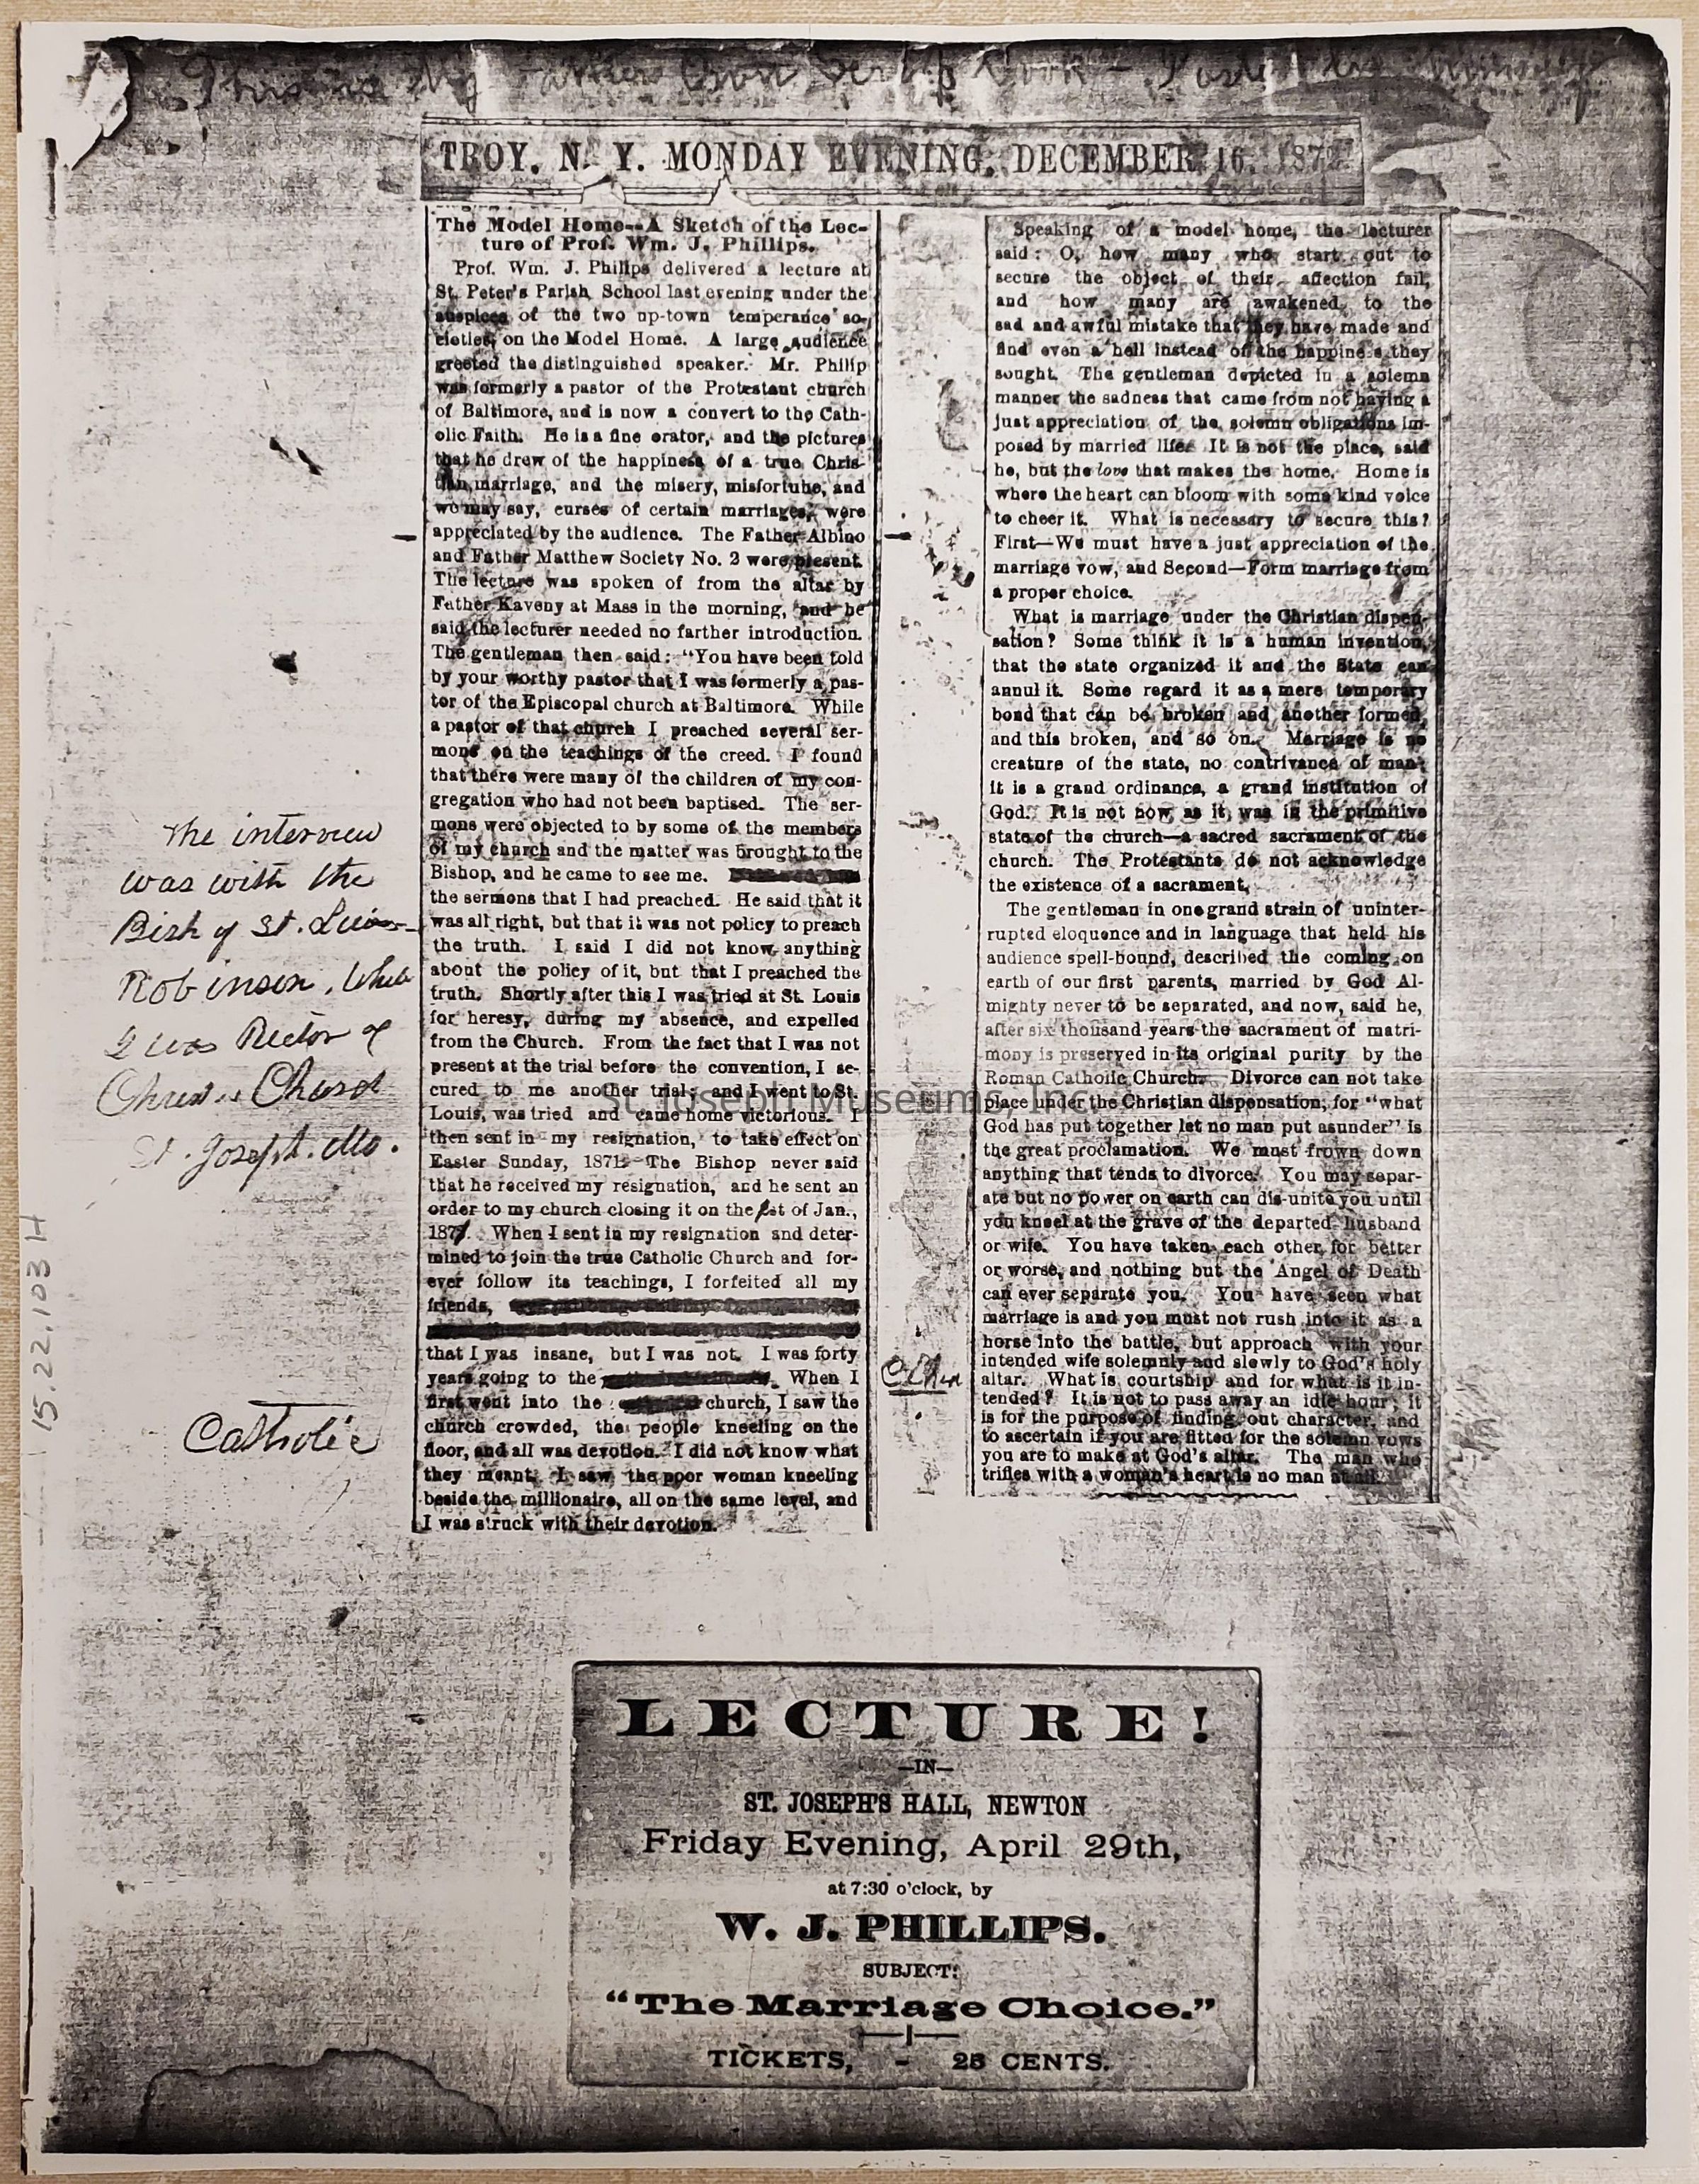 This is My Own Scrap Book
TROY, N. Y. MONDAY EVENING, DECEMBER 16, 187
The Model Home--A Sketch of the Lec-
ture of Prof. Wm. J. Phillips.
Prof. Wm. J. Philips delivered a lecture at
St. Peter's Parish School last evening under the
auspices of the two up-town temperance so-
cieties, on the Model Home. A large audience
greeted the distinguished speaker. Mr. Philip
was formerly a pastor of the Protestant church
of Baltimore, and is now a convert to the Cath-
olic Faith. He is a fine orator, and the pictures
that he drew of the happiness of a true Chris-
tian marriage, and the misery, misfortune, and
we may say, curses of certain marriages, were
appreciated by the audience. The Father Albino
and Father Matthew Society No. 2 were present.
The lecture was spoken of from the altar by
Father Kaveny at Mass in the morning, and he
said the lecturer needed no farther introduction.
The gentleman then said: "You have been told
by your worthy pastor that I was formerly a pas-
tor of the Episcopal church at Baltimore. While
a pastor of that church I preached several ser-
mons on the teachings of the creed. I found
that there were many of the children of my con-
gregation who had not been baptised. The ser-
mons were objected to by some of the members
of my church and the matter was brought to the
Bishop, and he came to see me.
the sermons that I had preached. He said that it
was all right, but that it was not policy to preach
the truth. I said I did not know anything
about the policy of it, but that I preached the
truth. Shortly after this I was tried at St. Louis
for heresy, during my absence, and expelled
from the Church. From the fact that I was not
present at the trial before the convention, I se-
cured to me another trial; and I went to St.
Louis, was tried and came home victorious. I
then sent in my resignation, to take effect on
Easter Sunday, 1871. The Bishop never said
that he received my resignation, and he sent an
order to my church closing it on the 1st of Jan.,
1871. When I sent in my resignation and deter-
mined to join the true Catholic Church and for-
ever follow its teachings, I forfeited all my
friends,
and brothers
that I was insane, but I was not. I was forty
years going to the When I
first went into the church, I saw the
church crowded, the people kneeling on the
floor, and all was devotion. I did not know what
they meant. I saw the poor woman kneeling
beside the millionaire, all on the same level, and
I was struck with their devotion.
The interview
was with the
Bish of St. Luis-
Robinson, While
I was Rector of
Christ Church
St. Joseph. Mo.
Catholic
Other
15.22.103 H
Speaking of a model home, the lecturer
said: O, how many who start out to
secure the object of their affection fail,
and how many are awakened to the
sad and awful mistake that they have made and
find even a hell instead of the happiness they
sought. The gentleman depicted in a solemn
manner the sadness that came from not having a
just appreciation of the solemn obligations im-
posed by married life. It is not the place, said
he, but the love that makes the home. Home is
where the heart can bloom with some kind voice
to cheer it. What is necessary to secure this?
First—We must have a just appreciation of the
marriage vow, and Second—Form marriage from
a proper choice.
What is marriage under the Christian dispen-
sation? Some think it is a human invention,
that the state organized it and the State can
annul it. Some regard it as a mere temporary
bond that can be broken and another formed,
and this broken, and so on. Marriage is no
creature of the state, no contrivance of man;
it is a grand ordinance, a grand institution of
God. It is not now as it was in the primitive
state of the church—a sacred sacrament of the
church. The Protestants do not acknowledge
the existence of a sacrament.
The gentleman in one grand strain of uninter-
rupted eloquence and in language that held his
audience spell-bound, described the coming on
earth of our first parents, married by God Al-
mighty never to be separated, and now, said he,
after six thousand years the sacrament of matri-
mony is preserved in its original purity by the
Roman Catholic Church. Divorce can not take
place under the Christian dispensation, for "what
God has put together let no man put asunder" is
the great proclamation. We must frown down
anything that tends to divorce. You may separ-
ate but no power on earth can dis-unite you until
you kneel at the grave of the departed husband
or wife. You have taken each other for better
or worse, and nothing but the Angel of Death
can ever separate you. You have seen what
marriage is and you must not rush into it as a
horse into the battle, but approach with your
intended wife solemnly and slowly to God's holy
altar. What is courtship and for what is it in-
tended? It is not to pass away an idle hour; it
is for the purpose of finding out character, and
to ascertain if you are fitted for the solemn vows
you are to make at God's altar. The man who
trifles with a woman's heart is no man at all.
St. Joseph Museums, Inc.
LECTURE!
—IN—
ST. JOSEPH'S HALL, NEWTON
Friday Evening, April 29th,
at 7:30 o'clock, by
W. J. PHILLIPS.
SUBJECT:
"The Marriage Choice."
TICKETS, - 25 CENTS.